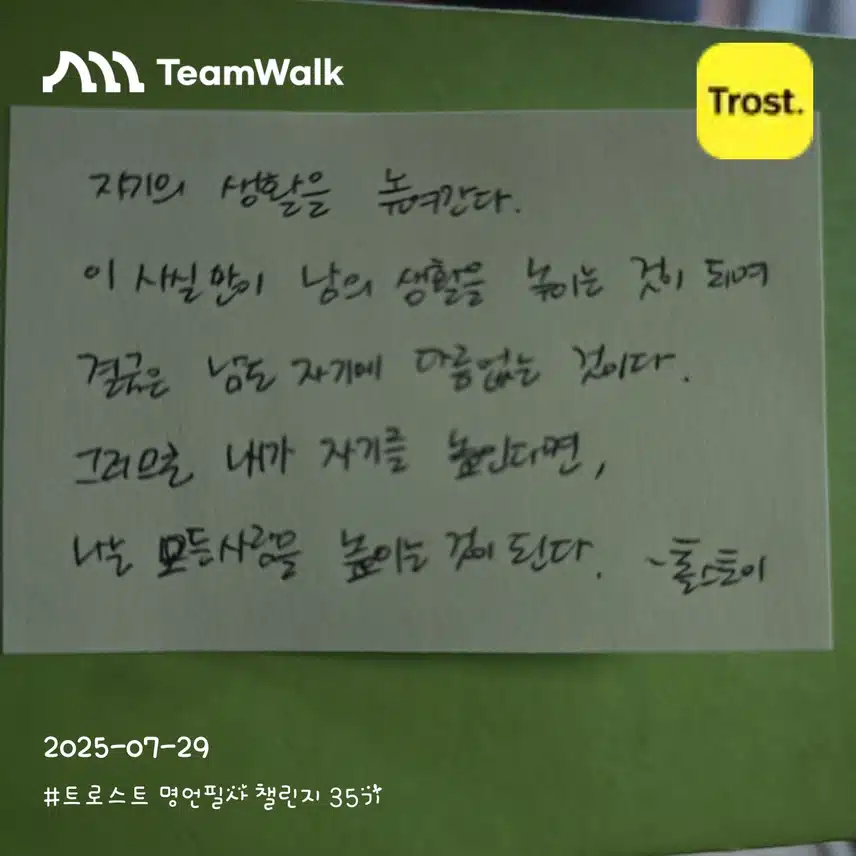 TeamWalk
Trost.
자기의 생활을 높여간다.
이 사실만이 남의 생활을 높이는 것이 되며
결국은 남도 자기에 다름없는 것이다.
그러므로 내가 자기를 높인다면,
나는 모든사람을 높이는 것이 된다. -톨스토이
2025-07-29
#트로스트 명언필사 챌린지 35차